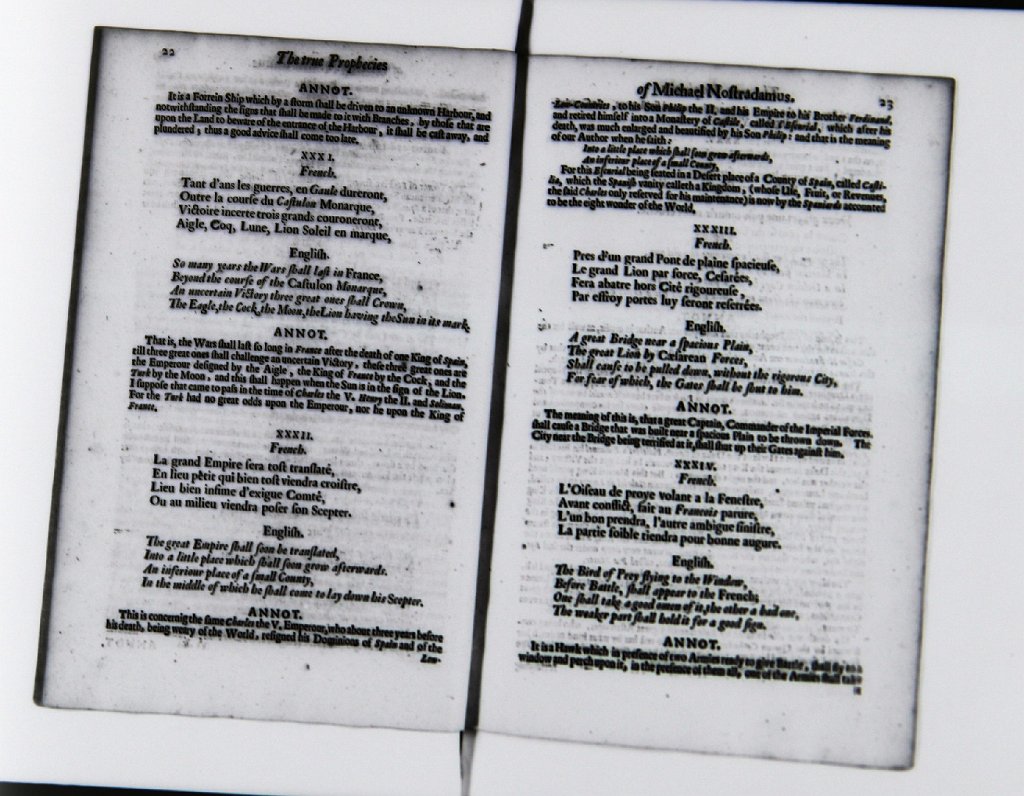 22
The true Prophecies
ANNOT.
It is a Forrein Ship which by a ſtorm ſhall be driven to an unknown Harbour, and
notwithſtanding the ſigns that ſhall be made to it with Branches, by thoſe that are
upon the Land to beware of the entrance of the Harbour, it ſhall be caſt away, and
plundered, thus a good advice ſhall come too late.
XXXI.
French.
Tant d'ans les guerres, en Gaule dureront,
Outre la courſe du Caſtulon Monarque,
Victoire incerte trois grands couroneront,
Aigle, Coq, Lune, Lion Soleil en marque,
Engliſh.
So many years the Wars ſhall laſt in France,
Beyond the courſe of the Caſtulon Monarque,
An uncertain Victory three great ones ſhall Crown,
The Eagle, the Cock, the Moon, the Lion having the Sun in its mark.
ANNOT.
That is, the Wars ſhall laſt ſo long in France after the death of one King of Spain,
till three great ones ſhall challenge an uncertain Victory, theſe three great ones are
the Emperour deſigned by the Aigle, the King of France by the Cock, and the
Turk by the Moon, and this ſhall happen when the Sun is in the ſign of the Lion.
I ſuppoſe that came to paſs in the time of Charles the V. Henry the II. and Soliman,
For the Turk had no great odds upon the Emperour, nor he upon the King of
France.
XXXII.
French.
La grand Empire ſera toſt tranſlaté,
En lieu petit qui bien toſt viendra croiſtre,
Lieu bien inſime d'exigue Comté,
Ou au milieu viendra poſer ſon Scepter.
Engliſh.
The great Empire ſhall ſoon be tranſlated,
Into a little place which ſhall ſoon grow afterwards.
An inferiour place of a ſmall County,
In the middle of which he ſhall come to lay down his Scepter.
ANNOT.
This is concernig the ſame Charles the V. Emperour, who about three years before
his death, being weary of the World, reſigned his Dominions of Spain and of the
Low-
of Michael Noſtradamus.
23
Low-Countries, to his Son Philip the II. and his Empire to his Brother Ferdinand,
and retired himſelf into a Monaſtery of Caſtile, called l'Eſcurial, which after his
death, was much enlarged and beautified by his Son Philip: and that is the meaning
of our Author when he ſaith:
Into a little place which ſhall ſoon grow afterwards,
An inferiour place of a ſmall County,
For this Eſcurial being ſeated in a Deſert place of a County of Spain, called Caſti-
lia, which the Spaniſh vanity calleth a Kingdom, (whoſe Uſe, Fruit, or Revenues,
the ſaid Charles only reſerved for his maintenance) is now by the Spaniards accounted
to be the eight wonder of the World.
XXXIII.
French.
Pres d'un grand Pont de plaine ſpacieuſe,
Le grand Lion par force, Ceſarées,
Fera abatre hors Cité rigoureuſe,
Par eſtroy portes luy ſeront reſerrées.
Engliſh.
A great Bridge near a ſpacious Plain,
The great Lion by Cæſarean Forces,
Shall cauſe to be pulled down, without the rigorous City,
For fear of which, the Gates ſhall be ſhut to him.
ANNOT.
The meaning of this is, that a great Captain, Commander of the Imperial Forces
ſhall cauſe a Bridge that was built near a ſpacious Plain to be thrown down. The
City near the Bridge being terrified at it, ſhall ſhut up their Gates againſt him.
XXXIV.
French.
L'Oiſeau de proye volant a la Feneſtre,
Avant conflict, fait au Francois parure,
L'un bon prendra, l'autre ambigue ſiniſtre,
La partie foible tiendra pour bonne augure.
Engliſh.
The Bird of Prey flying to the Window,
Before Battle, ſhall appear to the French;
One ſhall take a good omen of it, the other a bad one,
The weaker part ſhall hold it for a good ſign.
ANNOT.
It is a Hawk which in preſence of two Armies ready to give Battle, ſhall fly to a
window and perch upon it, in the preſence of them all, one of the Armies ſhall take
it